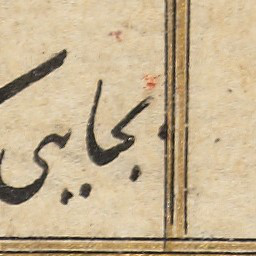 بجایی